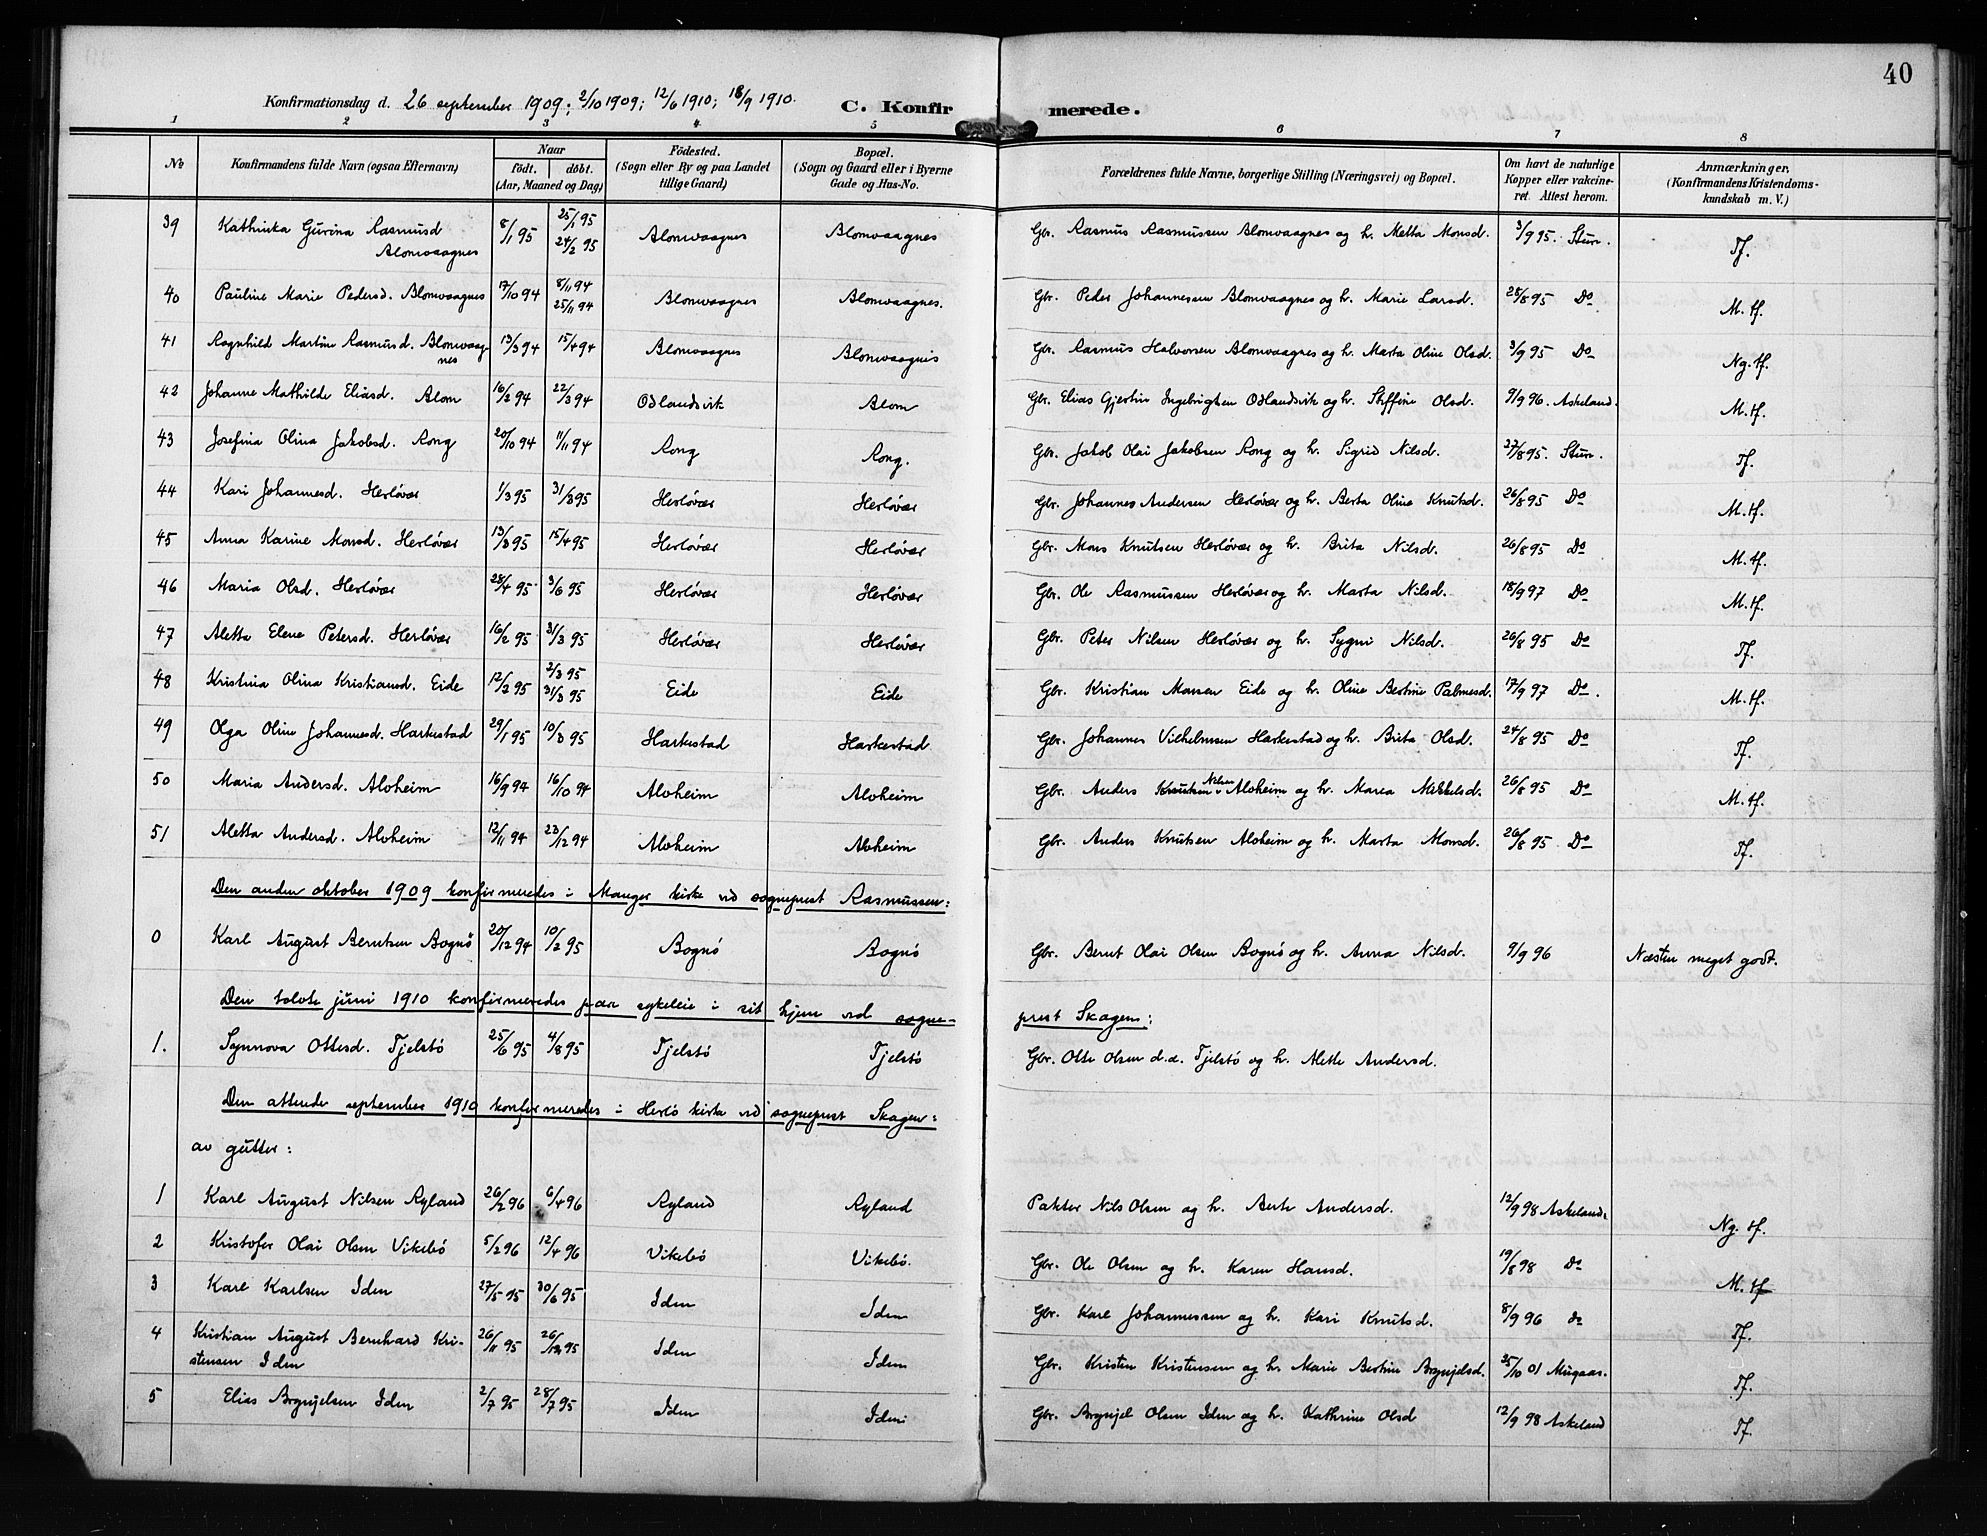 40
Konfirmationsdag d. 26 september 1909; 2/10 1909; 12/6 1910; 18/9 1910. C. Konfirmerede.
1 2 3 4 5 6 7 8
No Konfirmandens fulde Navn (ogsaa Efternavn) Naar født. døbt. (Aar, Maaned og Dag) Födested. (Sogn eller By og paa Landet tillige Gaard) Bopæl. (Sogn og Gaard eller i Byerne Gade og Hus-No. Forældrenes fulde Navne, borgerlige Stilling (Næringsvei) og Bopæl. Om havt de naturlige Kopper eller vakcineret. Attest herom. Anmærkninger. (Konfirmandens Kristendomskundskab m. V.)
39 Kathinka Gurina Rasmusd Blomvaagnes 8/1 95 25/1 95 24/2 95 Blomvaagnes Blomvaagnes Gbr. Rasmus Rasmussen Blomvaagnes og h. Metta Monsd. 3/9 95. Sture. Tf.
40 Pauline Marie Pedersd. Blomvaagnes 17/10 94 8/11 94 25/11 94 Blomvaagnes Blomvaagnes. Gbr. Peder Johannesen Blomvaagnes og h. Marie Larsd. 28/8 95 Do M. tf.
41 Ragnhild Martine Rasmusd. Blomvaagnes 13/3 94 15/4 94 Blomvaagnes Blomvaagnes Gbr. Rasmus Halvorsen Blomvaagnes og h. Marta Oline Olsd. 3/9 95 Do Ng. tf.
42 Johanne Mathilde Eliasd. Blom 16/2 94 22/3 94 Odlandsvik Blom Gbr. Elias Gjertin Ingebrigtsen Odlandsvik og h. Steffine Olsd. 9/9 96. Askeland. M. tf.
43 Josefina Olina Jakobsd. Rong 20/10 94 11/11 94 Rong Rong. Gbr. Jakob Olai Jakobsen Rong og h. Sigrid Nilsd. 27/8 95. Sture. Tf.
44 Kari Johannesd. Herløvær 1/3 95 31/3 95 Herløvær Herløvær Gbr. Johannes Andersen Herløvær og h. Berta Oline Knutsd. 26/8 95 Do M. tf.
45 Anna Karine Monsd. Herløvær 13/3 95 15/4 95 Herløvær Herløvær Gbr. Mons Knutsen Herløvær og h. Brita Nilsd. 26/8 95 Do M. tf.
46 Maria Olsd. Herløvær 28/4 95 3/6 95 Herløvær Herløvær Gbr. Ole Rasmussen Herløvær og h. Marta Nilsd. 18/9 97 Do M. tf.
47 Aletta Elene Petersd. Herløvær 16/2 95 31/3 95 Herløvær Herløvær Gbr. Peter Nilsen Herløvær og h. Sygni Nilsd. 26/8 95 Do Tf.
48 Kristina Olina Kristiansd. Eide 12/2 95 2/3 95 31/3 95 Eide Eide Gbr. Kristian Monsen Eide og h. Oline Bertine Palmesd. 17/9 97 Do. M. tf.
49 Olga Oline Johannesd. Harkestad 29/1 95 10/3 95 Harkestad Harkestad Gbr. Johannes Vilhelmsen Harkestad og h. Brita Olsd. 24/8 95 Do Tf.
50 Maria Andersd. Alvheim 16/9 94 16/10 94 Alvheim Alvheim Gbr. Anders Knutsen Nilsen Alvheim og h. Maria Mikkelsd. 26/8 95 Do M. tf.
51 Aletta Andersd. Alvheim 12/11 94 23/12 94 Alvheim Alvheim Gbr. Anders Knutsen Alvheim og h. Marta Monsd. 26/8 95 Do Tf.
Den anden oktober 1909 konfirmeredes i Manger kirke ved sogneprest Rasmussen:
0 Karl August Berntsen Bognø 20/12 94 10/2 95 Bognø Bognø Gbr. Bernt Olai Olsen Bognø og h. Anna Nilsd. 9/9 96 Næsten meget godt.
Den tolvte juni 1910 konfirmeredes paa sykeleie i sit hjem ved sogneprest Skagen:
1. Synnova Ottesd. Tjelstø 25/6 95 4/8 95 Tjelstø Tjelstø Gbr. Otte Olsen d.æ. Tjelstø og h. Alette Andersd.
Den attende september 1910 konfirmeredes i Herlø kirke ved sogneprest Skagen:
av gutter:
1 Karl August Nilsen Ryland 26/2 96 6/4 96 Ryland Ryland Pakter Nils Olsen og h. Berte Andersd. 12/9 98 Askeland. Ng. tf.
2 Kristofer Olai Olsen Vikebø 5/2 96 12/4 96 Vikebø Vikebø. Gbr. Ole Olsen og h. Karen Hansd. 19/8 98 Do M. tf
3 Karl Karlsen Iden 27/5 95 30/6 95 Iden Iden Gbr. Karl Johannessen og h. Kari Knutsd. 8/9 96 do Tf.
4 Kristian August Bernhard Kristensen Iden 26/11 95 26/12 95 Iden Iden Gbr. Kristen Kristensen og h. Marie Bertine Brynjelsd. 25/10 01 Mugaas. Tf.
5 Elias Brynjelsen Iden 2/7 95 28/7 95 Iden Iden Gbr. Brynjel Olsen Iden og h. Kathrine Olsd 12/9 98 Askeland Tf.